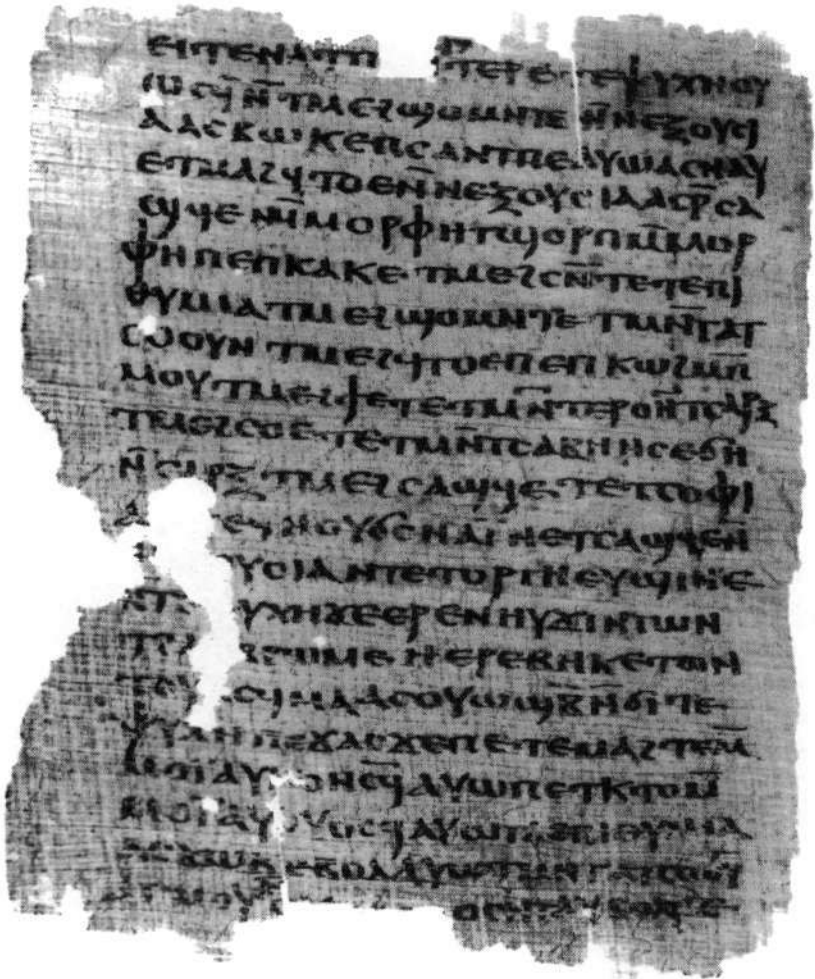 ⲉⲓⲧⲉⲛⲁⲧⲡ ⲧⲉⲣⲉⲧⲉⲯⲩⲭⲏⲟⲩ
ⲱⲥϥⲛ̄ⲧⲙⲉϩϣⲟⲙⲛⲧⲉⲛ̄ⲛⲉⲝⲟⲩⲥⲓ
ⲁⲁⲥⲃⲱⲕⲉⲡⲥⲁⲛⲧⲡⲉⲁⲩⲱⲁⲥⲛⲁⲩ
ⲉⲧⲙⲁϩϥⲧⲟⲉⲛ̄ⲛⲉⲝⲟⲩⲥⲓⲁⲁⲥⲣ̄ⲥⲁ
ϣϥⲉⲙ̄ⲙⲟⲣⲫⲏⲧϣⲟⲣⲡⲙ̄ⲙⲟⲣ
ⲫⲏⲡⲉⲡⲕⲁⲕⲉⲧⲙⲉϩⲥⲛ̄ⲧⲉⲧⲉⲡⲓ
ⲑⲩⲙⲓⲁⲧⲙⲉϩϣⲟⲙⲛⲧⲉⲧⲙⲛ̄ⲧⲁⲧ
ⲥⲟⲟⲩⲛⲧⲙⲉϩϥⲧⲟⲉⲡⲉⲡⲕⲱϩⲙ̄ⲡ
ⲙⲟⲩⲧⲙⲉϩϯⲉⲧⲉⲧⲙⲛ̄ⲧⲉⲣⲟⲛ̄ⲧⲥⲁⲣⲝ
ⲧⲙⲉϩⲥⲟⲉⲧⲉⲧⲙⲛ̄ⲧⲥⲁⲃⲏⲛ̄ⲥⲉϭⲏ
ⲛ̄ⲥⲁⲣⲝ̄ⲧⲙⲉϩⲥⲁϣϥⲉⲧⲉⲧⲥⲟⲫⲓ
ⲉϥⲛⲟⲩϭⲥⲛⲁⲓ̈ⲛⲉⲧⲥⲁϣϥⲉⲛ̄
ⲩⲥⲓⲁⲛⲧⲉⲧⲟⲣⲅⲏⲉⲩϣⲓⲛⲉ
ⲛⲧ ⲩⲭⲏϫⲉⲉⲣⲉⲛⲏⲩϫⲓⲛⲧⲱⲛ
ⲧ ⲣⲱⲙⲉⲏⲉⲣⲉⲃⲏⲕⲉⲧⲱⲛ
ⲧⲟⲩ ⲥϥⲙⲁⲁⲥⲟⲩⲱϣⲃ̄ⲛ̄ϭⲓⲧⲉ
ⲯⲩⲭⲏⲡⲉϫⲁⲥϫⲉⲡⲉⲧⲉⲙⲁϩⲧⲉⲙ̄
ⲙⲟⲓ̈ⲁⲩ ⲟⲛⲥϥⲁⲩⲱⲡⲉⲧⲕⲧⲟⲙ̄
ⲙⲟⲓ̈ⲁⲩⲟⲩⲟⲥϥⲁⲩⲱⲧⲁⲉⲡⲓⲑⲩⲙⲓⲁ
ⲁⲥϫⲱⲕⲉⲃⲟⲗⲁⲩⲱⲧⲙⲛ̄ⲧⲁⲧⲥⲟⲟⲩ
ⲁⲥⲙⲟⲩ